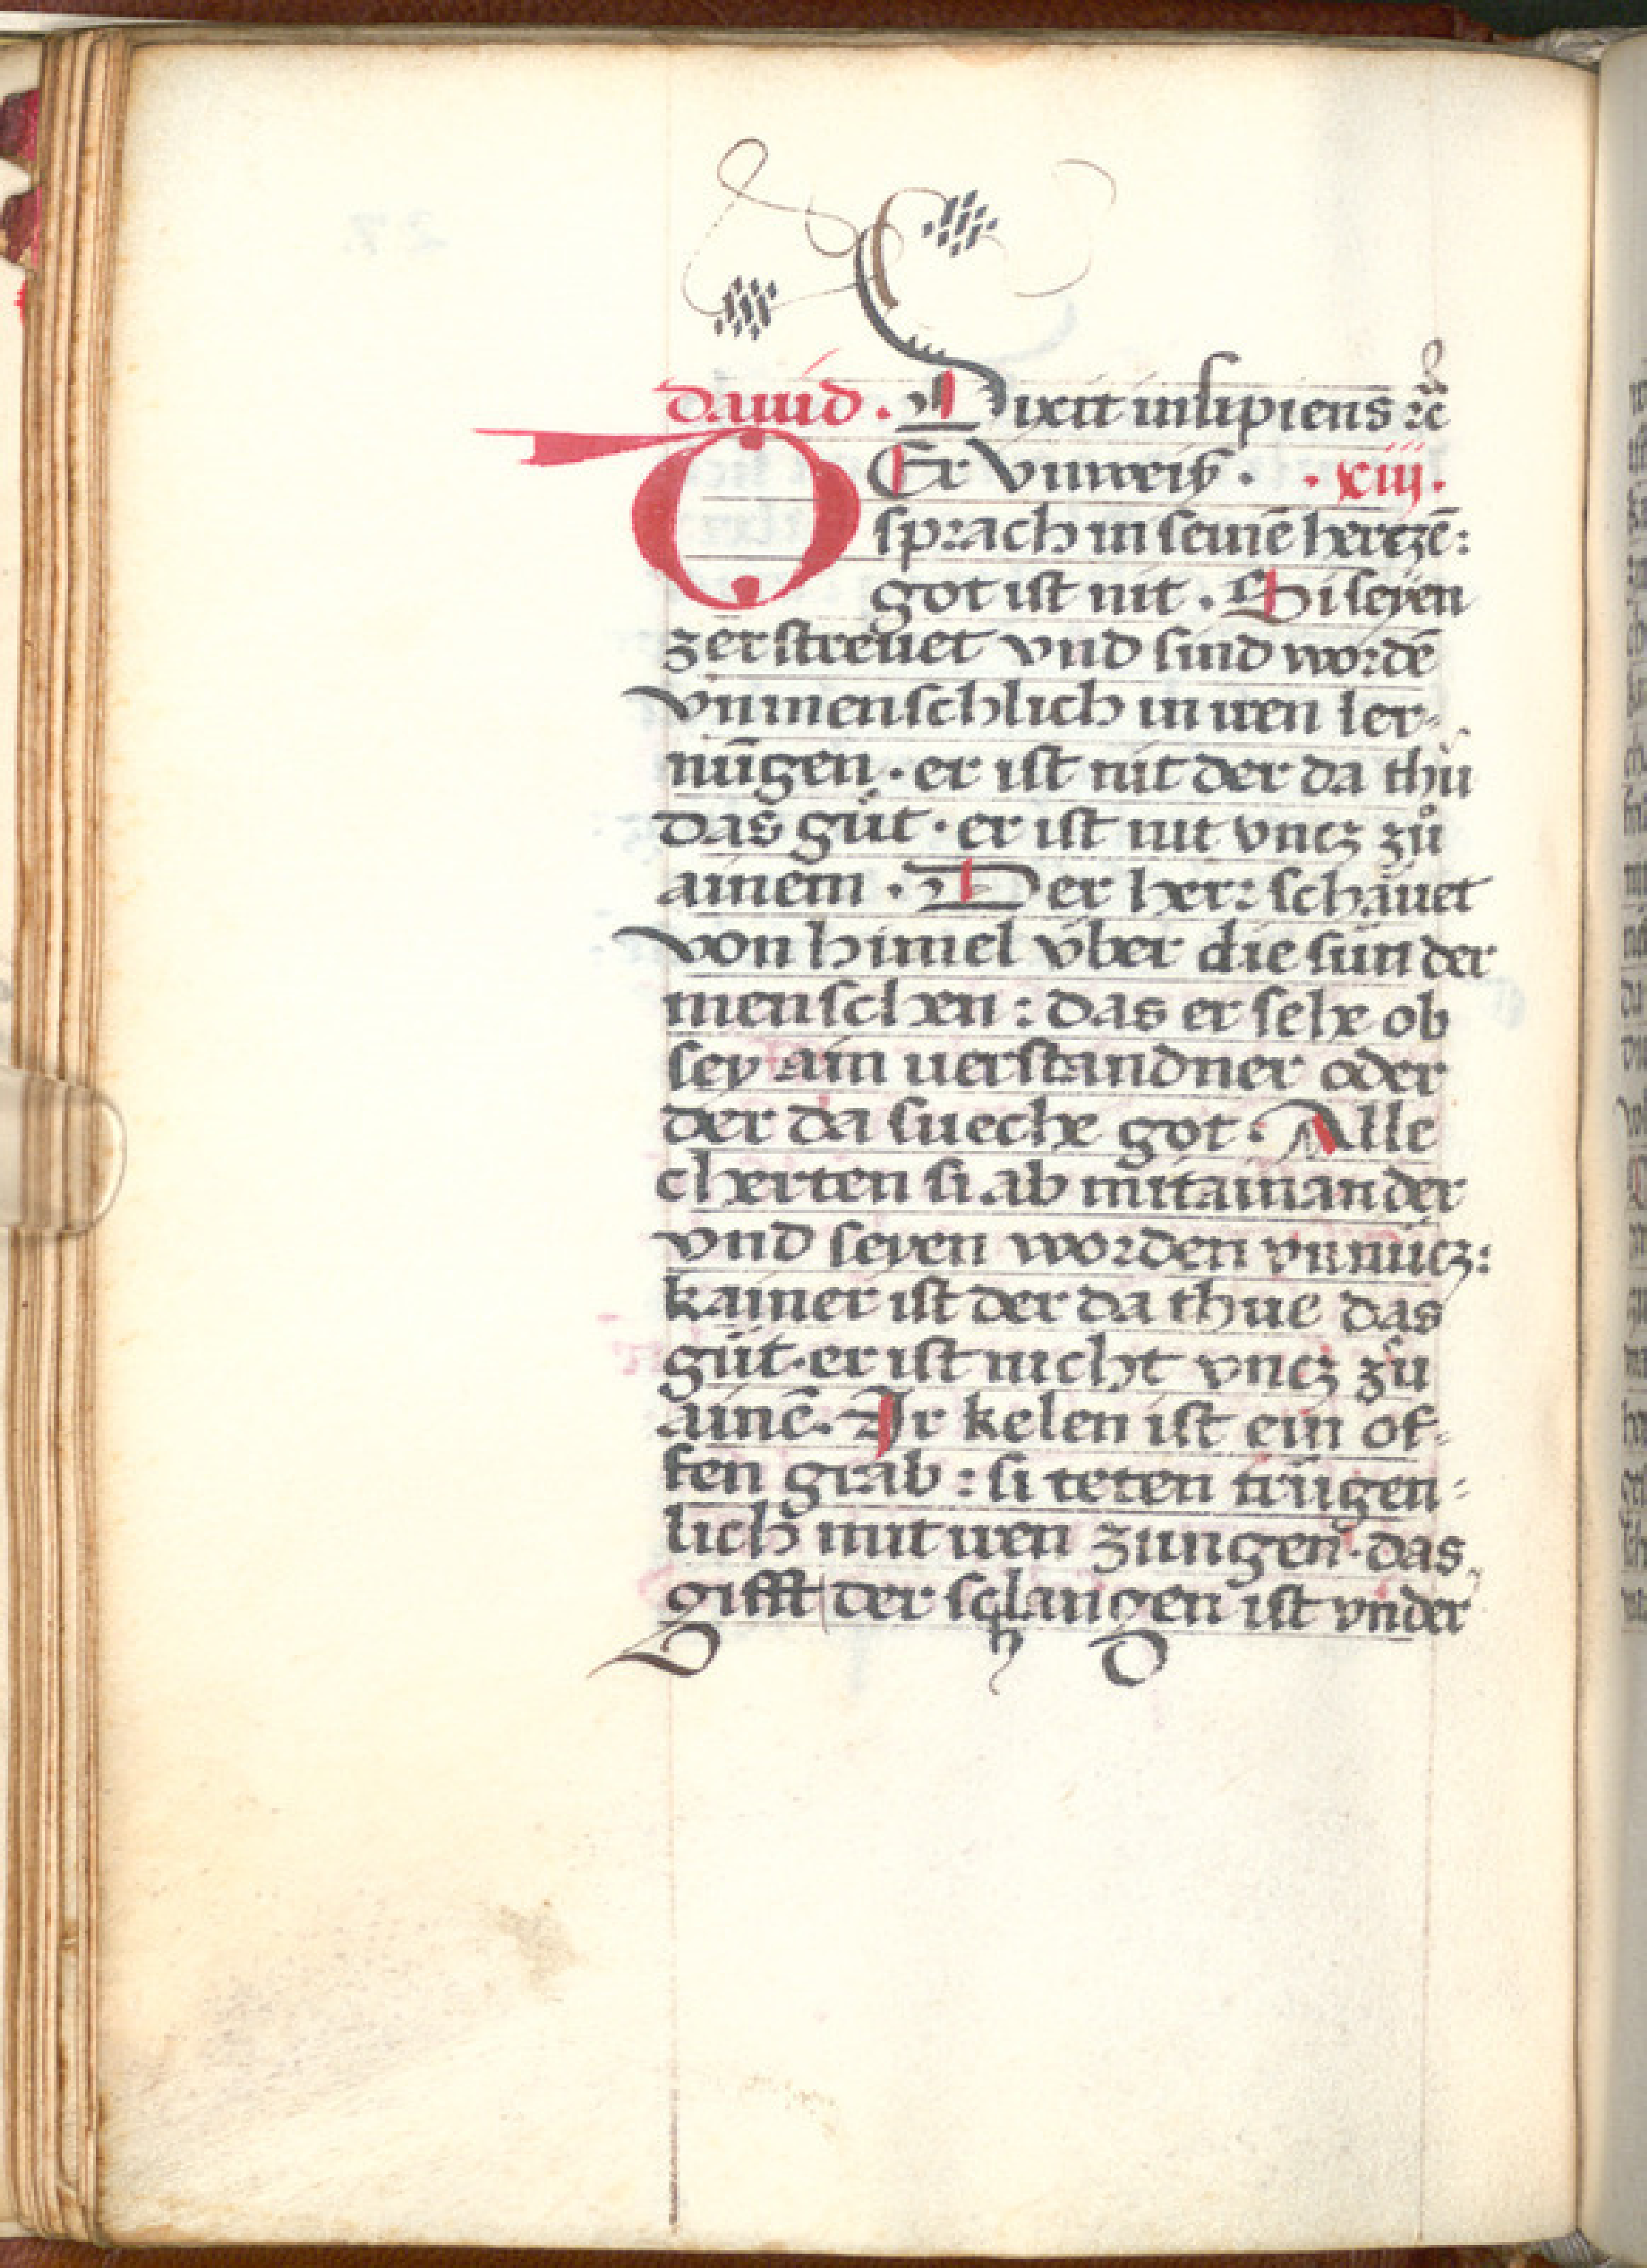 dauid · Dixit insipiens ⁊c̃
DEr vnweiß · · xiij ·
sprach in seinē hertzē :
got ist nit · Si seyen
zerströuet vnd sind wordē
vnmenschlich in iren ler-
nūgen · er ist nit der da thů
das gůt · er ist nit vncz zů
ainem · Der her : schauet
von himel vber die sün der
menschen : das er sehe ob
sey ain uerstandner oder
der da sueche got · Alle
cherten si ab mitainander
vnd seyen worden vnnücz :
kainer ist der da thue das
gůt · er ist nicht vncz zů
ainē · Ir kelen ist ein of-
fen grab : si teten trügen-
lich mit iren zungen · das
gifft der schlangen ist vnder